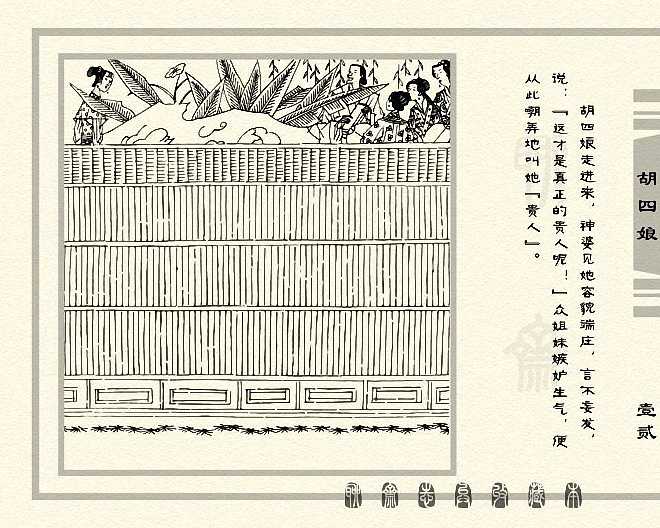 胡四娘走进来，神婆见她容貌端庄，言不妄发，
说：“这才是真正的贵人呢！”众姐妹嫉妒生气，便
从此嘲弄地叫她“贵人”。
胡四娘
壹贰
聊斋志异收藏本